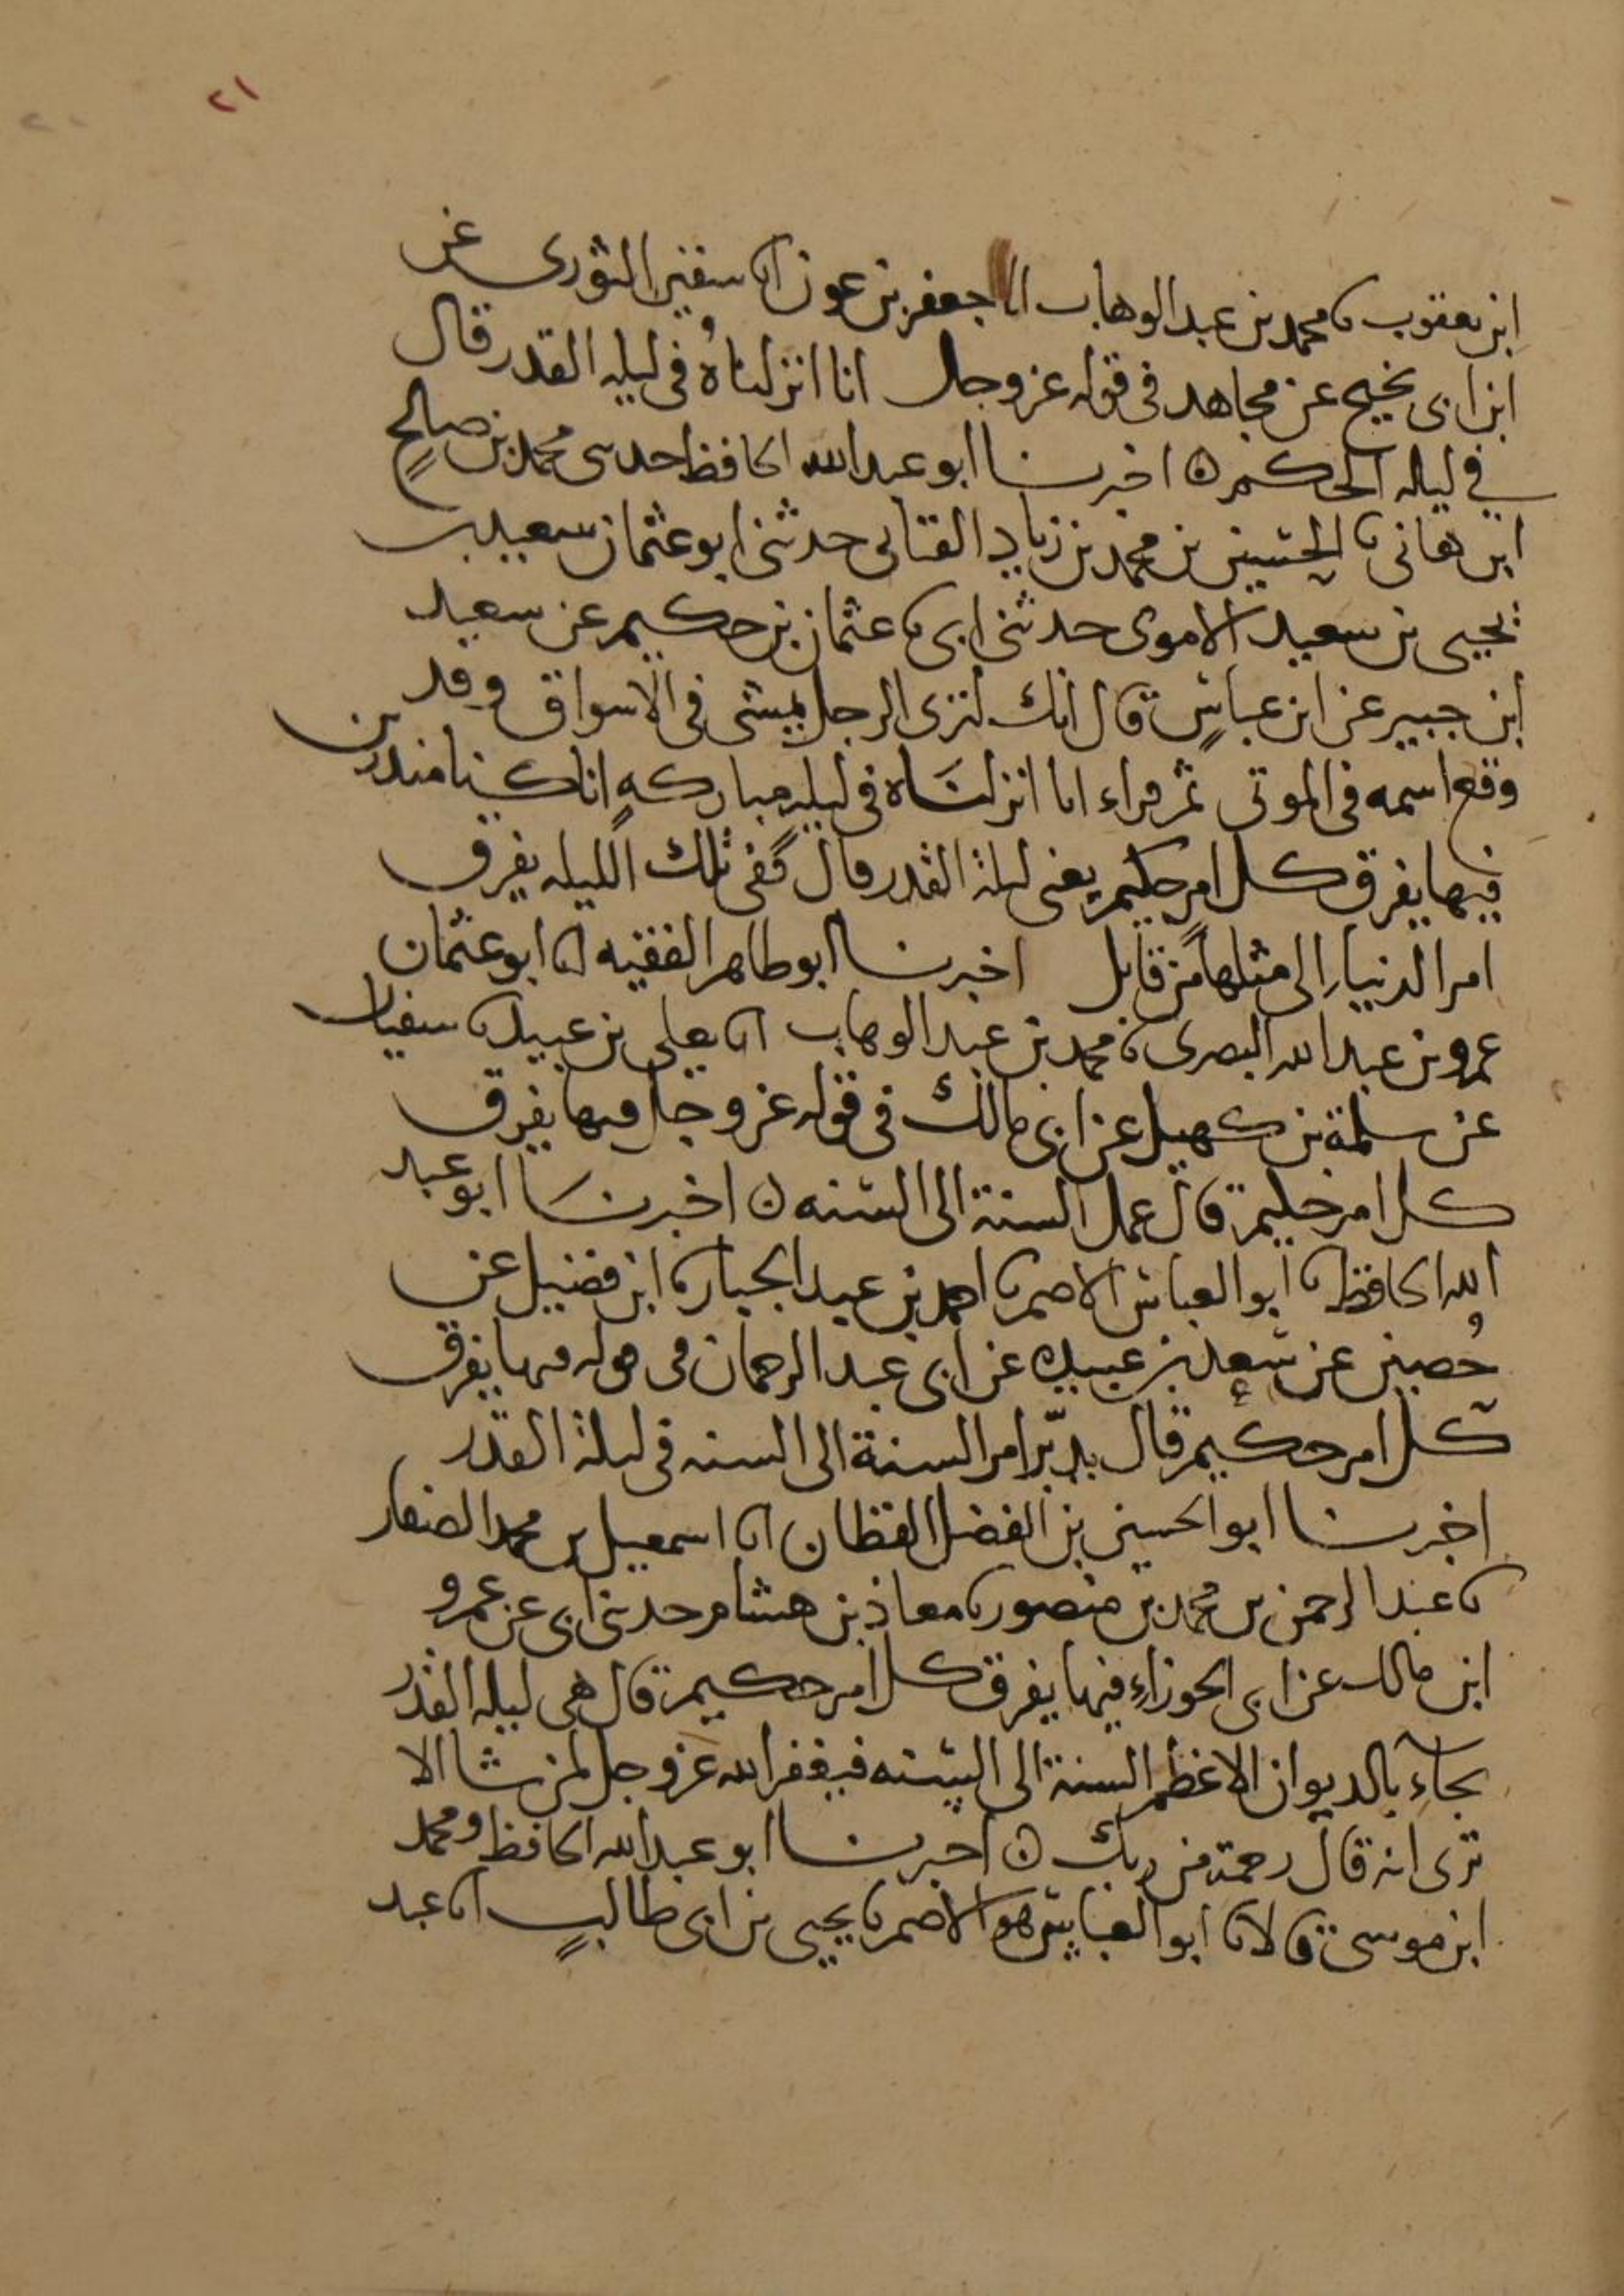 ٢١
٢٠
ابن يعقوب نا محمد بن عبد الوهاب انا جعفر بن عون انا سفين الثورى عن
ابن ابى نجيح عن مجاهد فى قوله عز وجل انا انزلناه فى ليله القدر قال
فى ليله الحكم ه اخبرنا ابو عبد الله الحافظ حدثنى محمد بن صالح
ابن هانى نا الحسين بن محمد بن زياد القبانى حدثنى ابو عثمان سعيد بن
يحيى بن سعيد الاموى حدثنى ابى نا عثمان بن حكيم عن سعيد
ابن جبير عن ابن عباس قال انك لترى الرجل يمشى فى الاسواق وقد
وقع اسمه فى الموتى ثم قراء انا انزلناه فى ليله مباركه انا كنا منذرين
فيها يفرق كل امر حكيم يعنى ليلة القدر قال ففى تلك الليله يفرق
امر الدنيا الى مثلها من قابل اخبرنا ابو طاهر الفقيه انا ابو عثمان
عمرو بن عبد الله البصرى نا محمد بن عبد الوهاب انا يعلى بن عبيد نا سفيان
عن سلمة بن كهيل عن ابى مالك فى قوله عز وجل فيها يفرق
كل امر حكيم قال عمل السنة الى السنه ه اخبرنا ابو عبد
الله الحافظ نا ابو العباس الاصم نا احمد بن عبد الجبار نا ابن فضيل عن
حُصين عن سعد بن عبيده عن ابى عبد الرحمان فى قوله فيها يفرق
كل امر حكيم قال يدبّر امر السنة الى السنه فى ليلة القدر
اخبرنا ابو الحسين بن الفضل القطان انا اسمعيل بن محمد الصفار
نا عبد الرحمن بن محمد بن منصور نا معاذ بن هشام حدثنى ابى عن عمرو
ابن مالك عن ابى الجوزاء فيها يفرق كل امر حكيم قال هى ليله القدر
يجاء بالديوان الاعظم السنة الى السنه فيغفر الله عز وجل لمن شا الا
ترى انه قال رحمة من ربك ه اخبرنا ابو عبد الله الحافظ ومحمد
ابن موسى قالا نا ابو العباس هو الاصم نا يحيى بن ابى طالب انا عبد